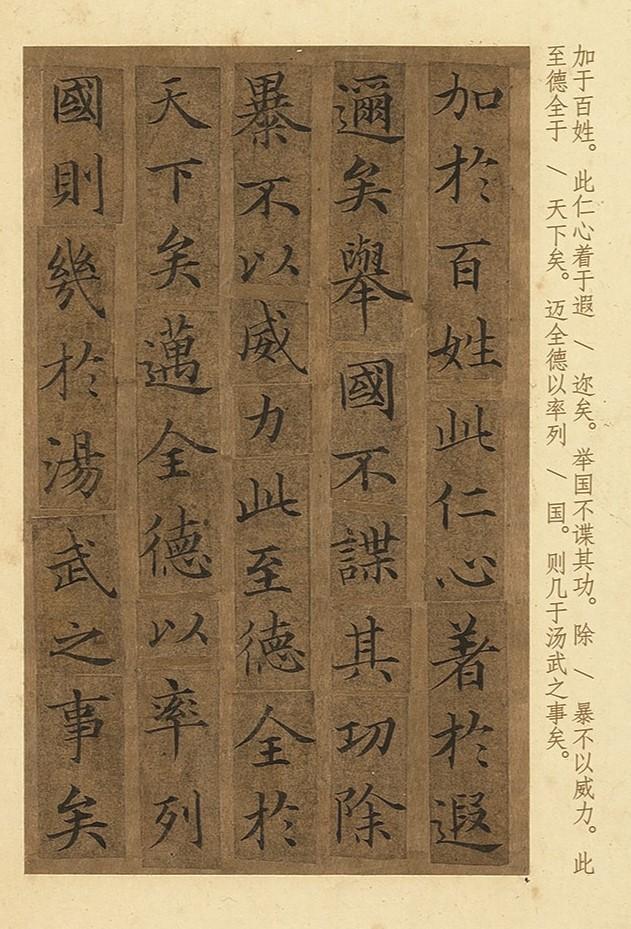 加于百姓。此仁心着于遐 \ 迩矣。举国不谍其功。除 \ 暴不以威力。此
至德全于 \ 天下矣。迈全德以率列 \ 国。则几于汤武之事矣。
加於百姓此仁心著於遐
邇矣舉國不諜其功除
暴不以威力此至德全於
天下矣邁全德以率列
國則幾於湯武之事矣